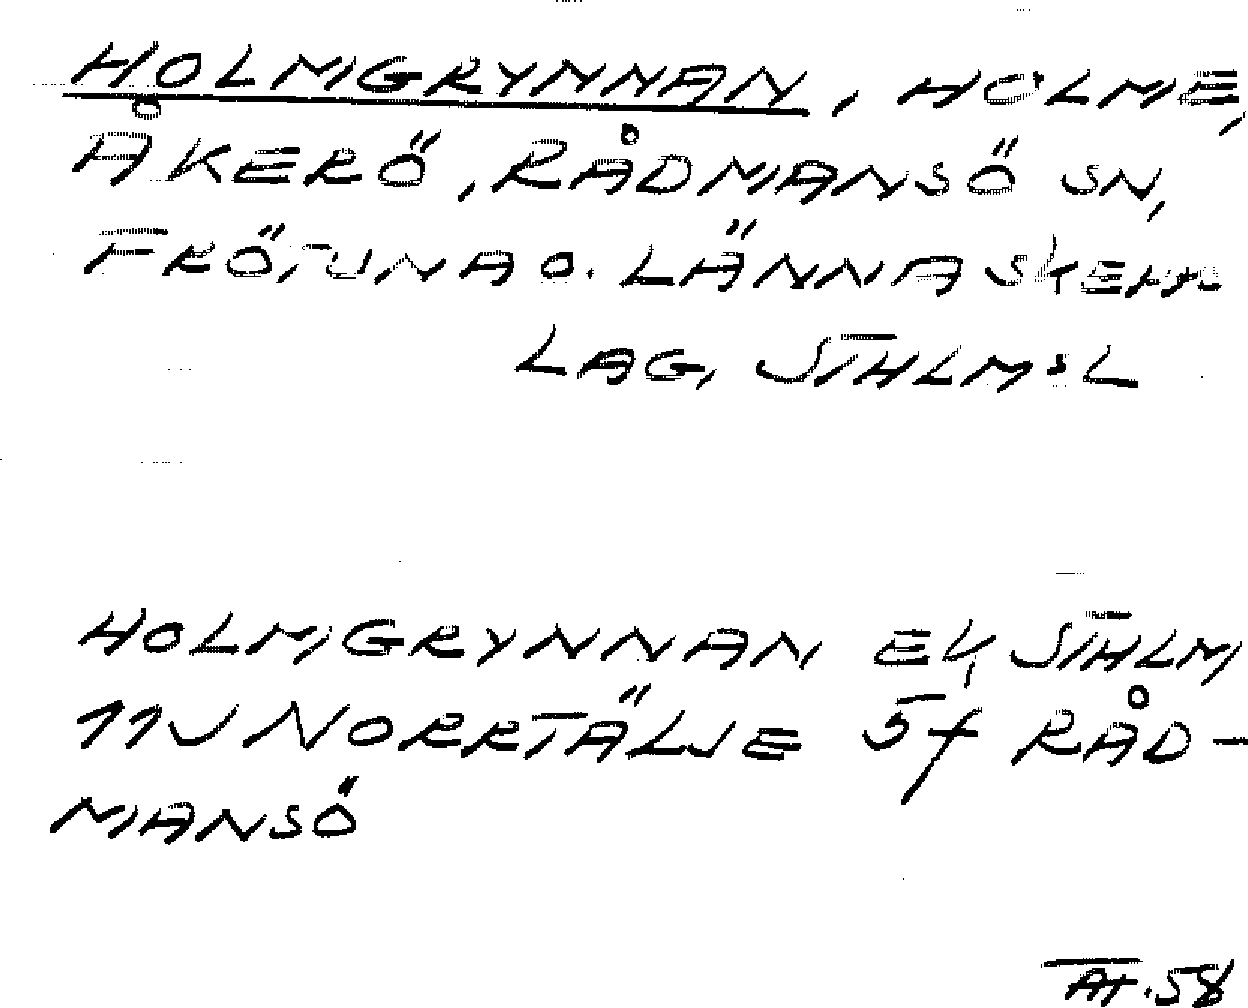 HOLMGRYNNAN, HOLME,
ÅKERÖ, RÅDMANSÖ SN,
FRÖTUNA O. LÄNNA SKEPPS-
LAG, STHLMS L
HOLMGRYNNAN EK, STHLM
11J NORRTÄLJE 5f RÅD-
MANSÖ
58